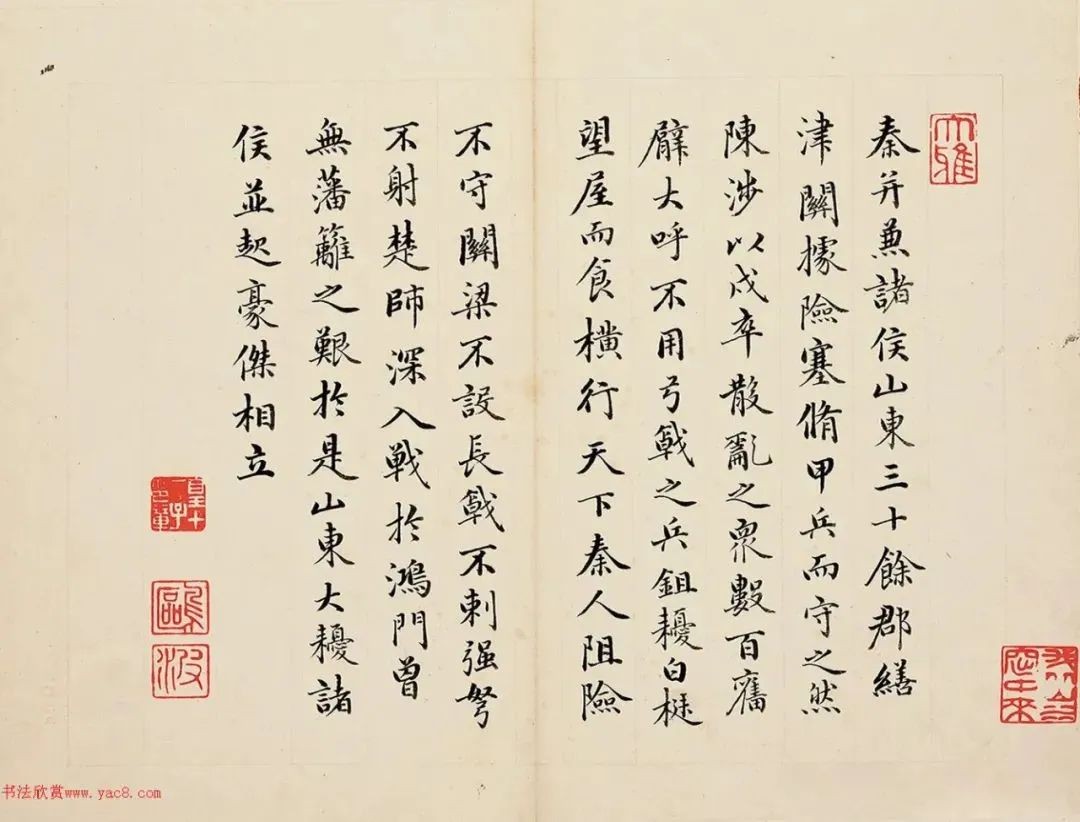 大雅
秦并兼諸侯山東三十餘郡繕
津關據險塞脩甲兵而守之然
陳涉以戍卒散亂之眾數百奮
臂大呼不用弓戟之兵鉏耰白梃
望屋而食橫行天下秦人阻險
不守關梁不設長戟不刺强弩
不射楚師深入戰於鴻門曾
無藩籬之艱於是山東大耰諸
侯並起豪傑相立
皇十一子
鷗波
书法欣赏www.yac8.com